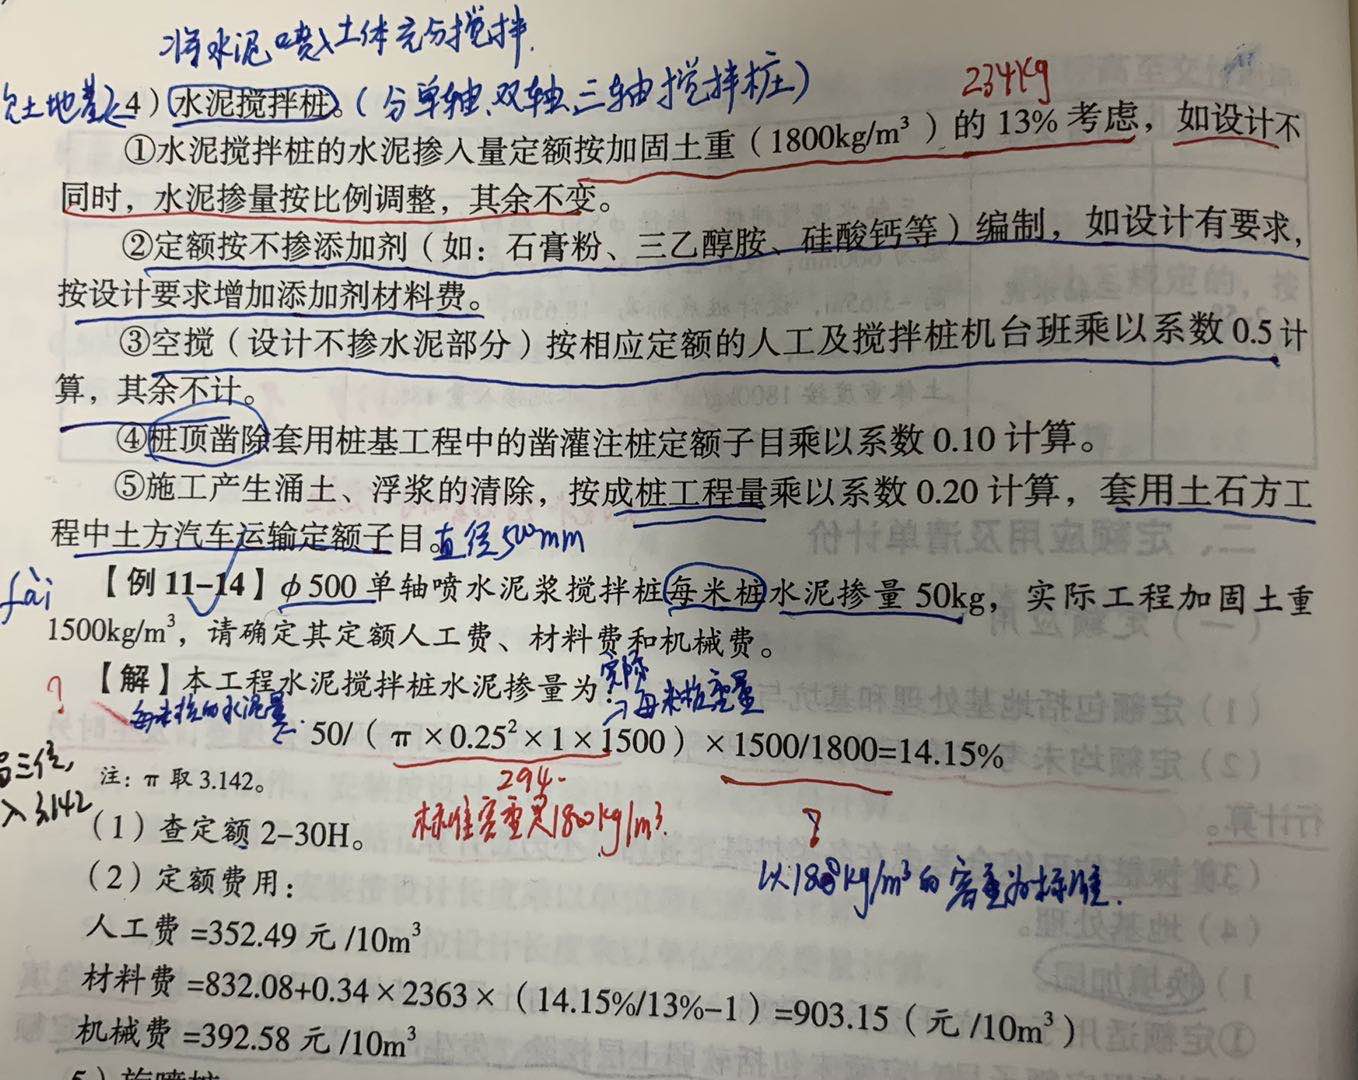 将水泥喷入土体充分搅拌.
4）水泥搅拌桩。（分单轴、双轴、三轴搅拌桩）
234kg
①水泥搅拌桩的水泥掺入量定额按加固土重（1800kg/m³）的13%考虑，如设计不
同时，水泥掺量按比例调整，其余不变。
②定额按不掺添加剂（如：石膏粉、三乙醇胺、硅酸钙等）编制，如设计有要求，
按设计要求增加添加剂材料费。
③空搅（设计不掺水泥部分）按相应定额的人工及搅拌桩机台班乘以系数0.5计
算，其余不计。
④桩顶凿除套用桩基工程中的凿灌注桩定额子目乘以系数0.10计算。
⑤施工产生涌土、浮浆的清除，按成桩工程量乘以系数0.20计算，套用土石方工
程中土方汽车运输定额子目。直径500mm
【例11-14】φ500单轴喷水泥浆搅拌桩每米桩水泥掺量50kg，实际工程加固土重
1500kg/m³，请确定其定额人工费、材料费和机械费。
【解】本工程水泥搅拌桩水泥掺量为：
实际
每米桩的水泥量
→每米桩重量
?
50/（π×0.25²×1×1500）×1500/1800=14.15%
注：π取3.142。
3.142
294
标准容重是1800kg/m³.
?
以1800kg/m³的容重为标准.
（1）查定额2-30H。
（2）定额费用：
人工费=352.49元/10m³
材料费=832.08+0.34×2363×（14.15%/13%-1）=903.15（元/10m³）
机械费=392.58元/10m³
5）旋喷桩